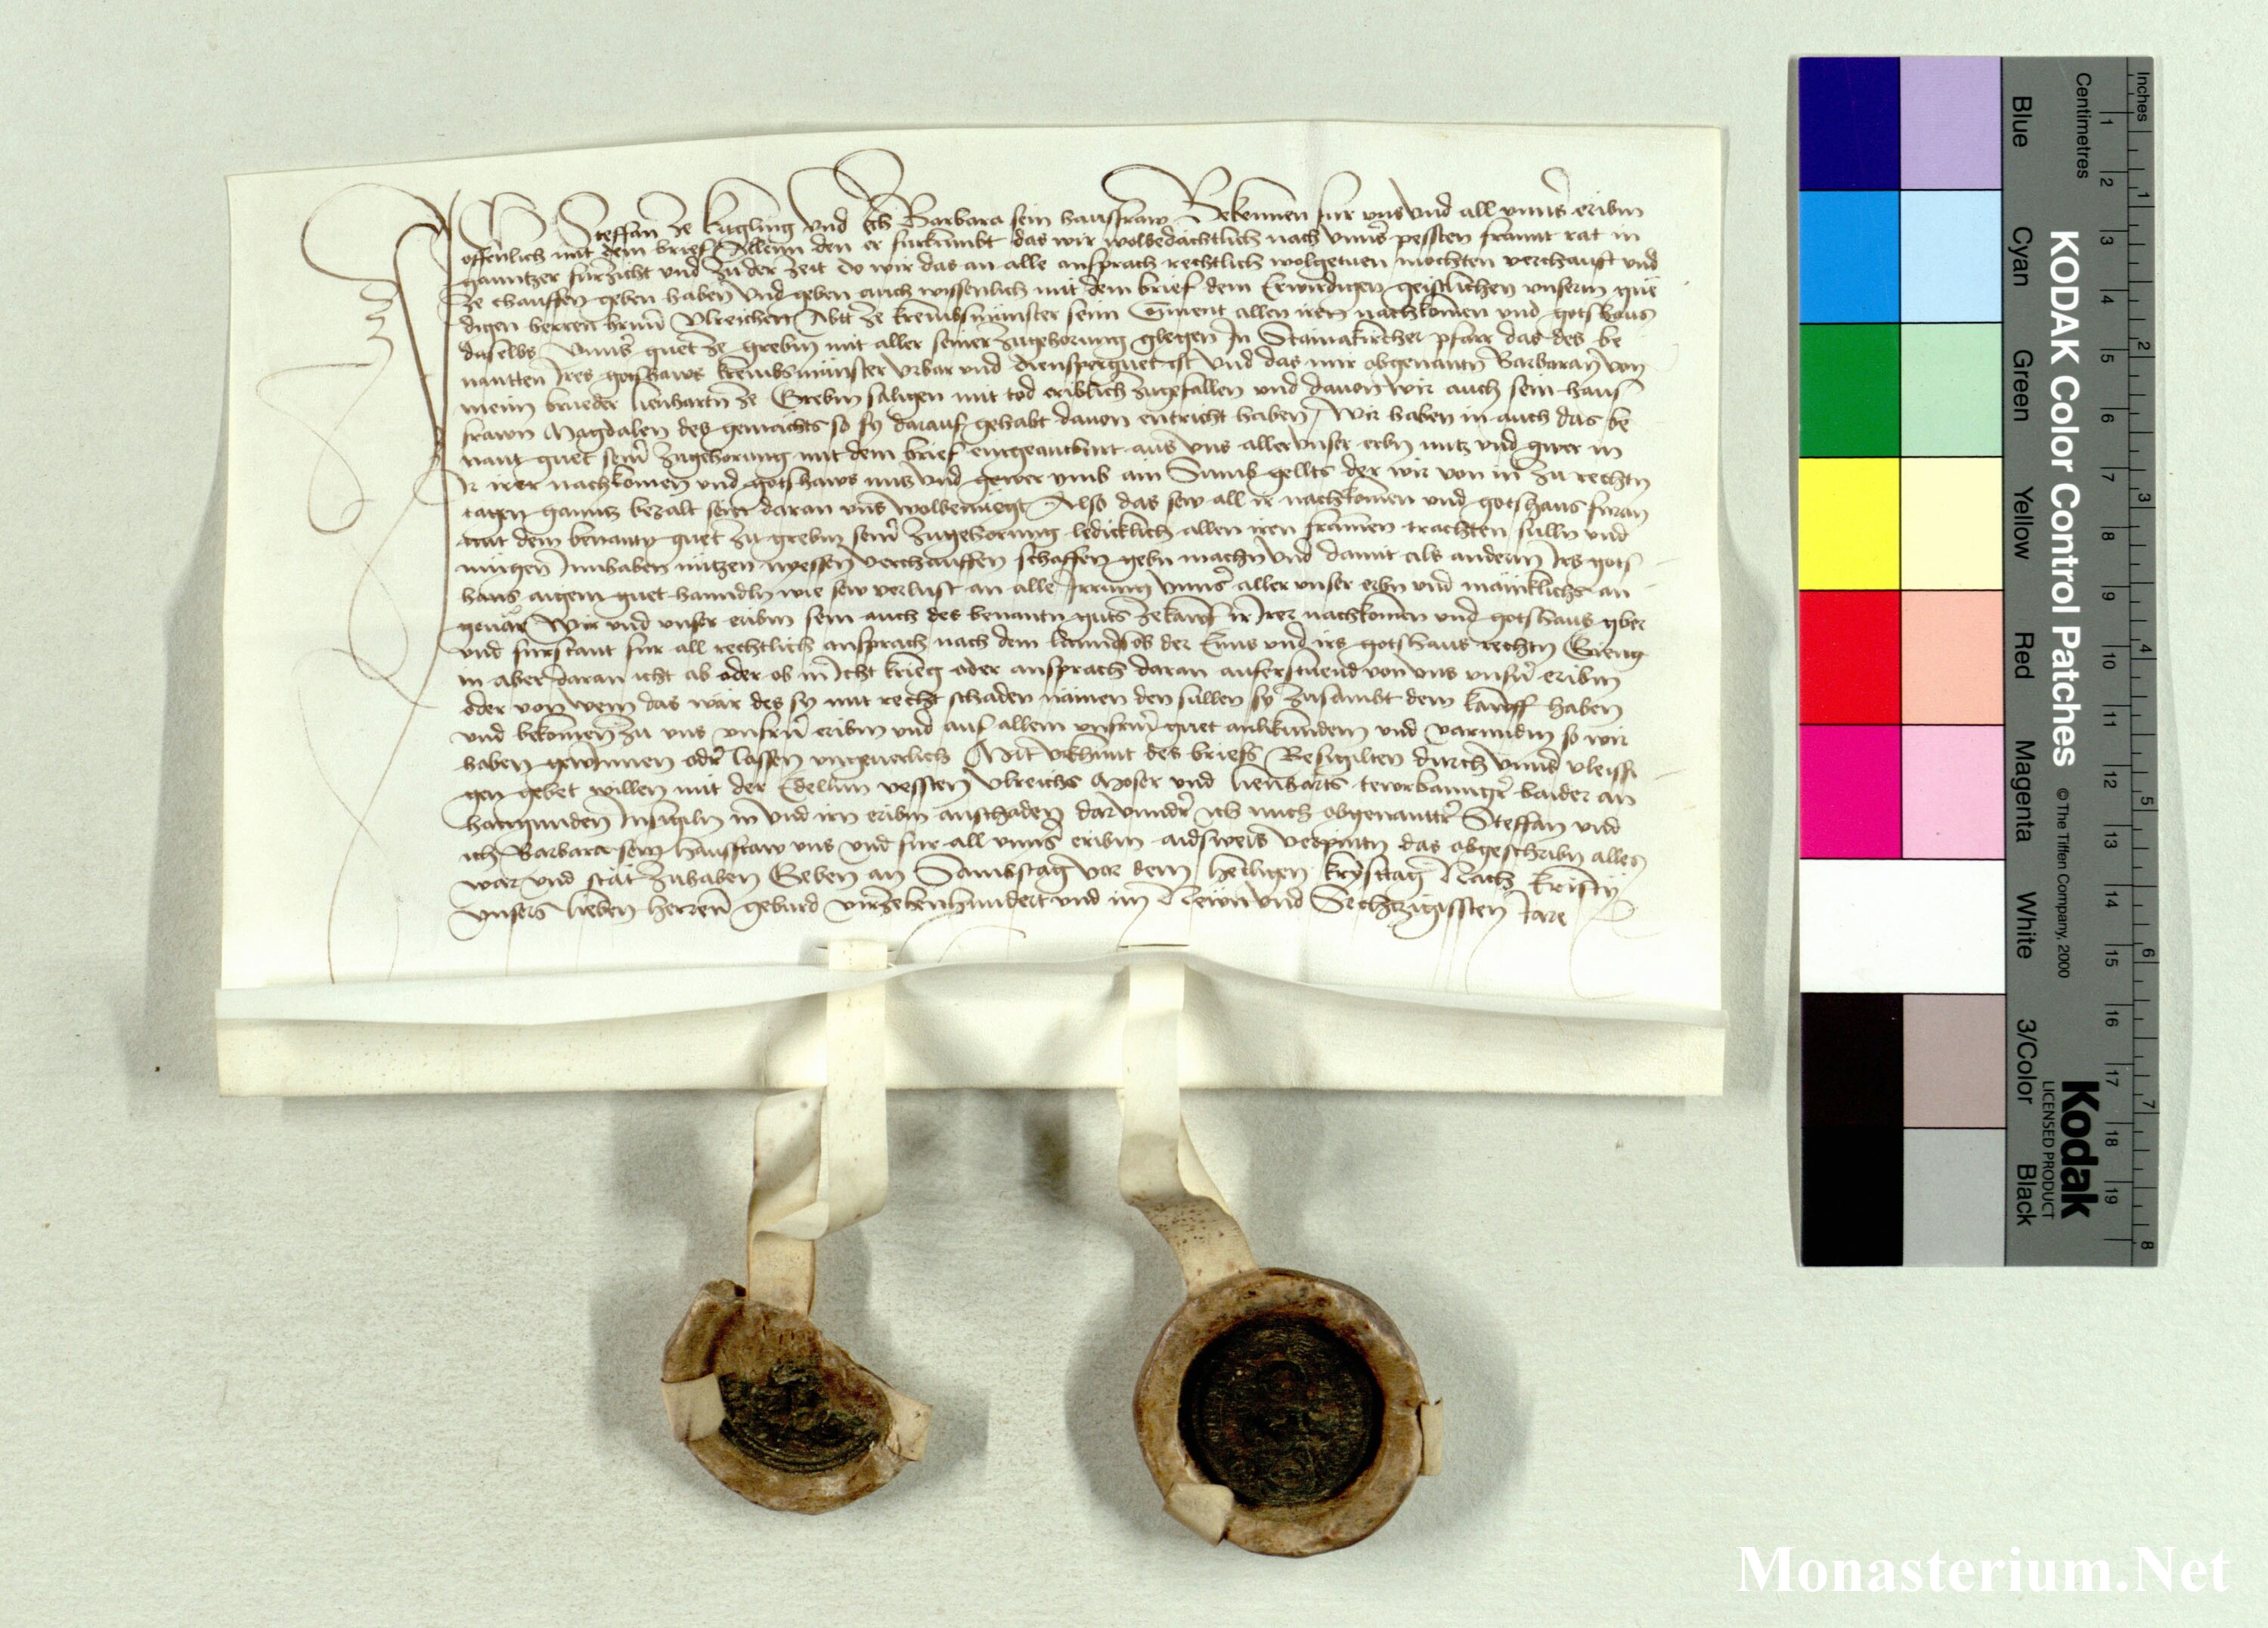 Ich Steffan ze kugling und Ich Barbara sein hausfraw Bekennen fur uns und all unns eribm
offenlich mit dem brief Allenn den er furkumbt das wir wolbedachtlich nach unns pessten frumt rat in
ganntzer furzicht und zu der zeit do wir das an alle ansprach rechtlich wolgetuen mochten verchaufft und
ze chauffen geben haben und geben auch wissenlich mit dem brief dem Erwirdigen geistlichen unserm gne
digen herren hernn Ulreichen Abtt ze krembsmunster seim Conuent allen iren nachkomen und gotshaus
daselbs unns guet ze grebm mit aller seiner zugehorung gelegen In Stainakircher pfarr das des be
nantten Ires gotshaws krembsmunster urbar und dienstperguet ist und das mir obgenantn Barbaran von
meim brueder lienhartn ze Grebm saligen mit tod eriblich zugefallen und dauon wir auch sein haus
frawn Magdalen des gemachts so sy darauf gehabt dauon entricht haben Wir haben in auch das be
nant guet seinr zugehorung mit dem brief eingeantburt aus uns aller unser erbn nutz und gwer in
Ir irer nachkomen und gotshaws nutz und gewer umb ain Sumb gellts der wir von in zu rechtn
tagen ganntz bezalt sein daran uns wolbenuegt Also das sew all ir nachkomen und gotshaus furan
mit dem benantn guet zu grebm seinr zugehorung ledicklich allen iren frumen trachten sulln und
mugen Innhaben nutzen nyessen verchauffen schaffen gebn machn und damit als anderm Irs gots
haus aigem guet hanndln wie sew verlust an alle Irrung unns aller unser erbn und mänklichs an
geuär Wir und unser eribm sein auch des benantn guts ze kauf ir Irer nachkomen und gotshaus gwer
und furstant fur all rechtlich ansprach nach dem lannds ob der Enns und irs gotshaus rechtn Gieng
in aber daran icht ab oder ob in Icht krieg oder ansprach daran auferstuend von uns unsern eribm
oder von wem das wär des sy mit recht schaden nämen den sullen sy zusambt dem kauff haben
und bekomen zu uns unsern eribm und auf allem unserm guet anligundem und varundm so wir
haben gewinnen oder lassen ungeuerlich Mit urkhunt des briefs Besigilten durch unns vleissi
gen gebet willen mit der Edellnn vessten Ulreichs Moser und lienharts baider an
hangunden Insigiln in und irn eribm anschaden darunndr ich mich obgenanttr Steffan und
ich Barbara sein hausfraw uns und fur all unns eribm aidsweis verpintn das obgeschribn alles
war und stät zuhaben Geben an Sambstag vor dem heiligen krysttag Nach kristy
unsers lieben herren geburd vierzehenhundert und im Newn und Sechtzigissten Jare
Inches
Centimetres
1 2 3 4 5 6 7 8 9 10 11 12 13 14 15 16 17 18 19
1 2 3 4 5 6 7 8
KODAK Color Control Patches
© The Tiffen Company, 2000
Kodak
LICENSED PRODUCT
Blue
Cyan
Green
Yellow
Red
Magenta
White
3/Color
Black
Monasterium.Net